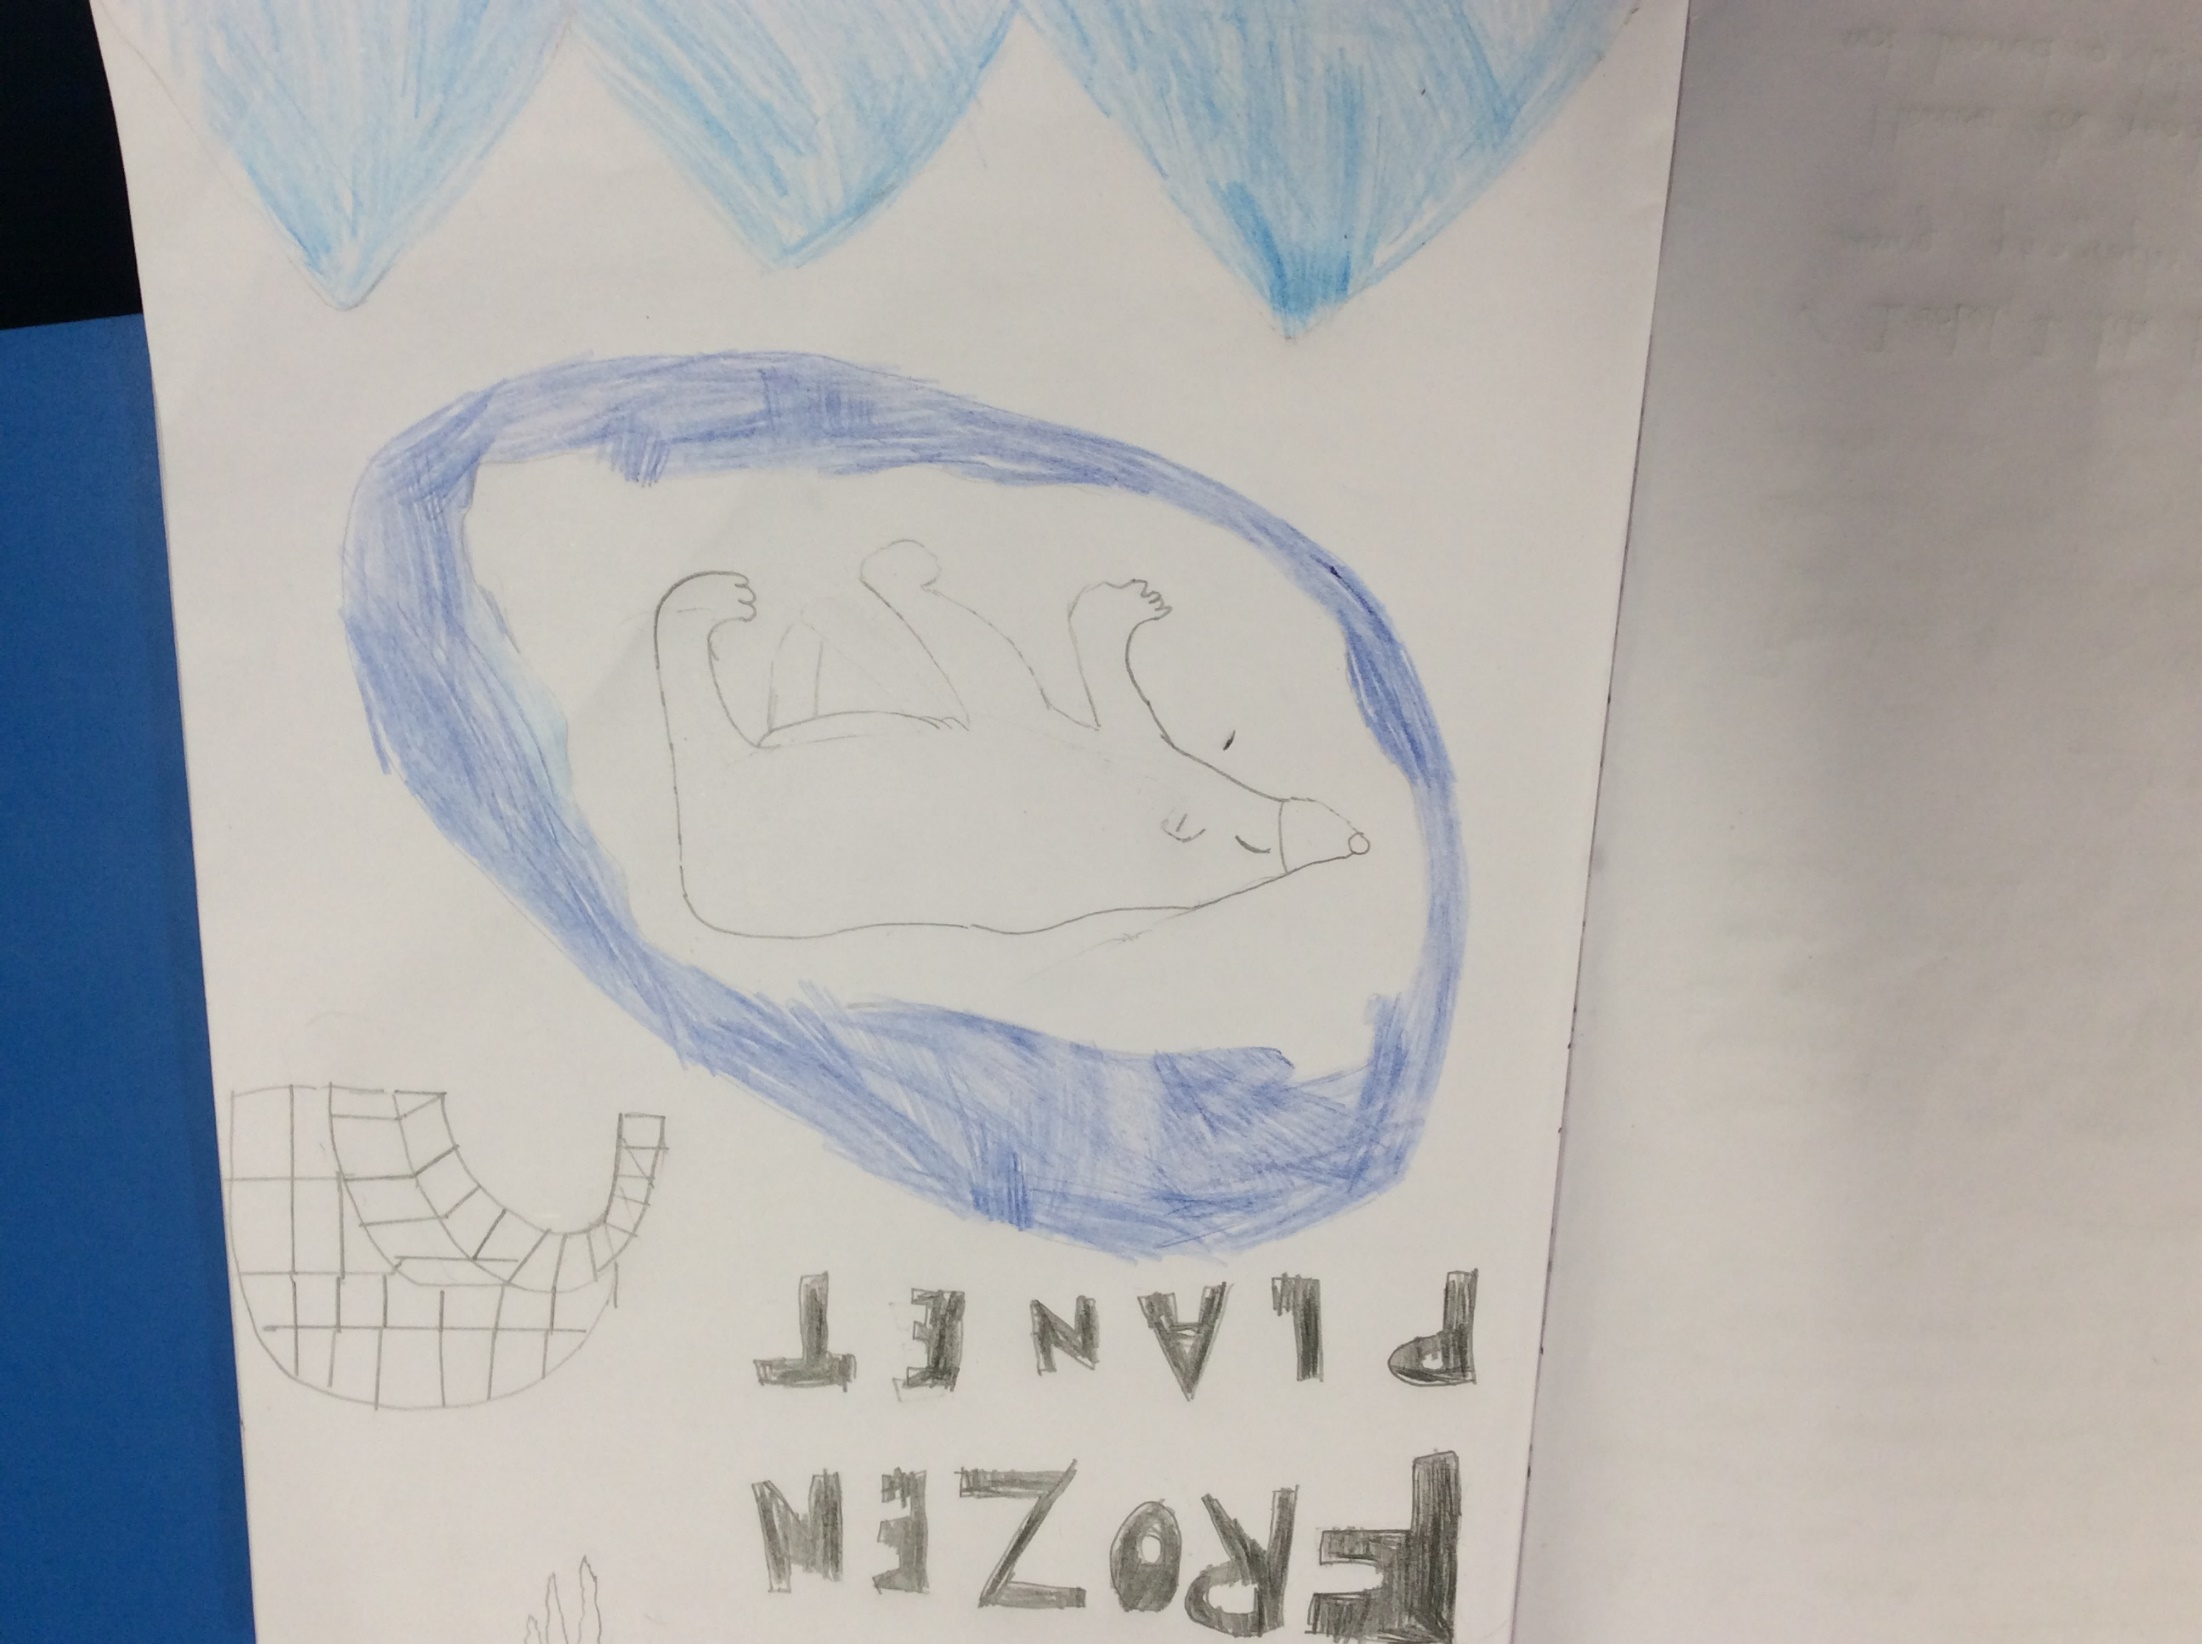 FROZEN
PLANET